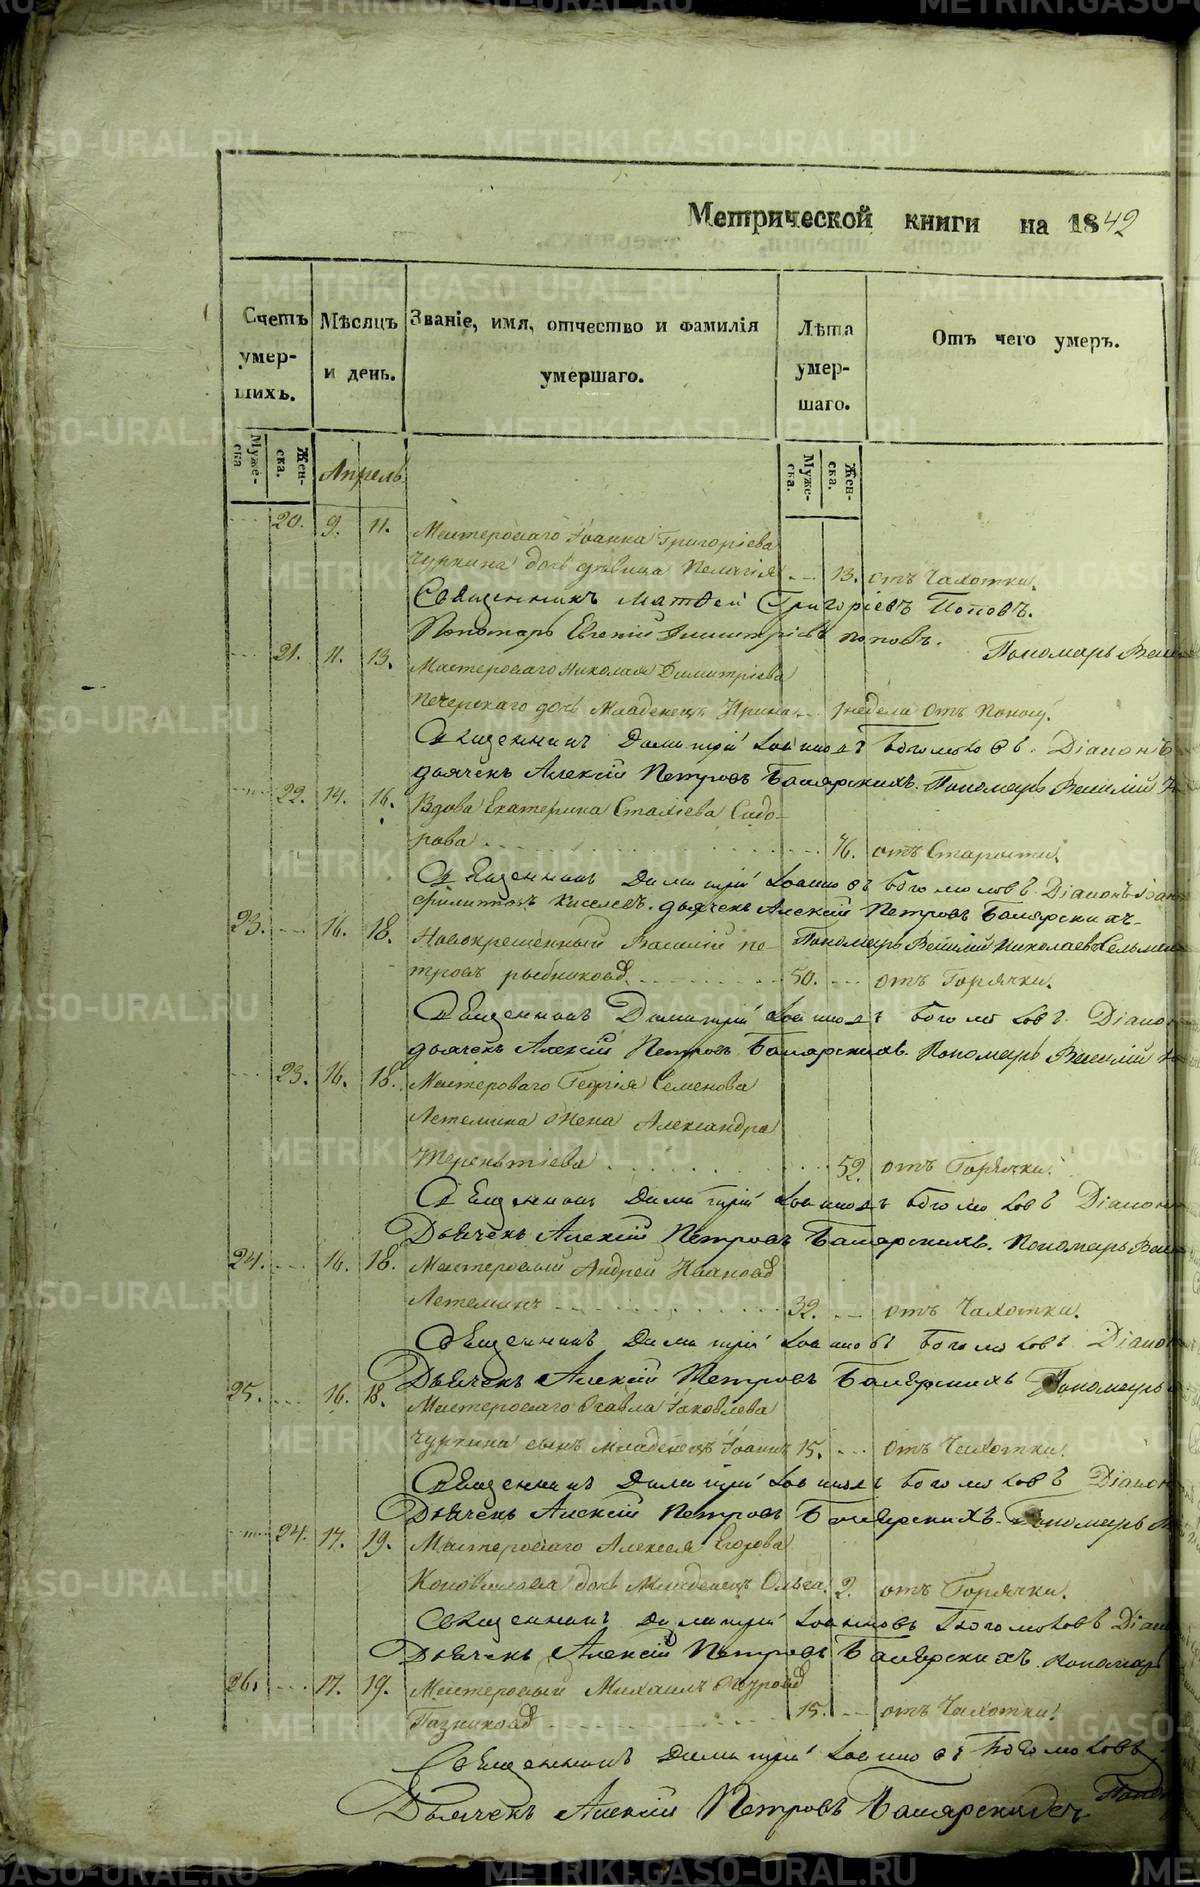 Метрической книги на 1842
Счетъ умер-шихъ.
Мѣсяцъ и день.
Званіе, имя, отчество и фамилія умершаго.
Лѣта умер-шаго.
Отъ чего умеръ.
Муже-ска
Жен-ска.
Муже-ска.
Жен-ска.
Апрель
20. 9. 11. Мастероваго Іоанна Григоріева
Чуркина дочь дѣвица Пелагія 13. отъ Чахотки.
Священникъ Матѳей Григоріевъ Поповъ.
Пономарь Евгеній Димитріевъ Поповъ. Пономарь
21. 11. 13. Мастероваго Николая Димитріева
Печерскаго дочь младенецъ Ирина 1 недели отъ Поносу.
Священникъ Димитрій Іоанновъ Богомоловъ. Діаконъ
дьячекъ Алексій Петровъ Боярскихъ. Пономарь
22. 14. 16. Вдова Екатерина Сидо-
рова 76. отъ Старости.
Священникъ Димитрій Іоанновъ Богомоловъ. Діаконъ
Киселевъ. дьячекъ Алексій Петровъ Боярскихъ
23. 16. 18. Новокрещенный Василій Пе- Пономарь Николаевъ
тровъ рыбниковъ 50. отъ Горячки.
Священникъ Димитрій Іоанновъ Богомоловъ. Діаконъ
дьячекъ Алексій Петровъ Боярскихъ. Пономарь
23. 16. 18. Мастероваго Георгія Семенова
Летемина жена Александра
Терентіева 52. отъ Горячки.
Священникъ Димитрій Іоанновъ Богомоловъ Діаконъ
Дьячекъ Алексій Петровъ Боярскихъ. Пономарь
24. 16. 18. Мастеровый Андрей Ивановъ
Летеминъ 32. отъ Чахотки.
Священникъ Димитрій Іоанновъ Богомоловъ Діаконъ
Дьячекъ Алексій Петровъ Боярскихъ Пономарь
25. 16. 18. Мастероваго Павла Іаковлева
Чуркина сынъ младенецъ Іоаннъ 15. отъ Чахотки.
Священникъ Димитрій Іоанновъ Богомоловъ Діаконъ
Дьячекъ Алексій Петровъ Боярскихъ. Пономарь
24. 17. 19. Мастероваго Алексея Егорова
Коновалова дочь младенецъ Ольга. 2. отъ Горячки.
Священникъ Димитрій Іоанновъ Богомоловъ
Дьячекъ Алексій Петровъ Боярскихъ. Пономарь
26. 17. 19. Мастеровый Михаилъ
15. отъ Чахотки.
Священникъ Димитрій Іоанновъ Богомоловъ.
Дьячекъ Алексій Петровъ Боярскихъ
METRIKI.GASO-URAL.RU